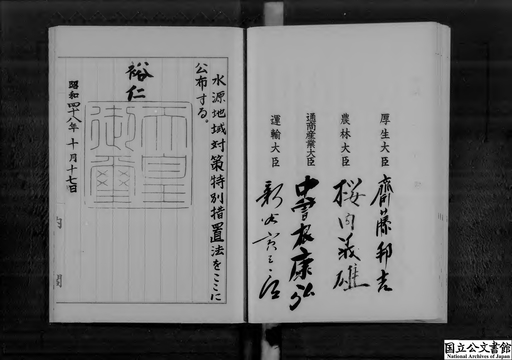 水源地域対策特別措置法をここに
公布する。
裕仁
天皇
御璽
昭和四十八年十月十七日
内閣
厚生大臣 齋藤邦吉
農林大臣 櫻内義雄
通商産業大臣 中曽根康弘
運輸大臣 新谷寅三郎
国立公文書館
National Archives of Japan